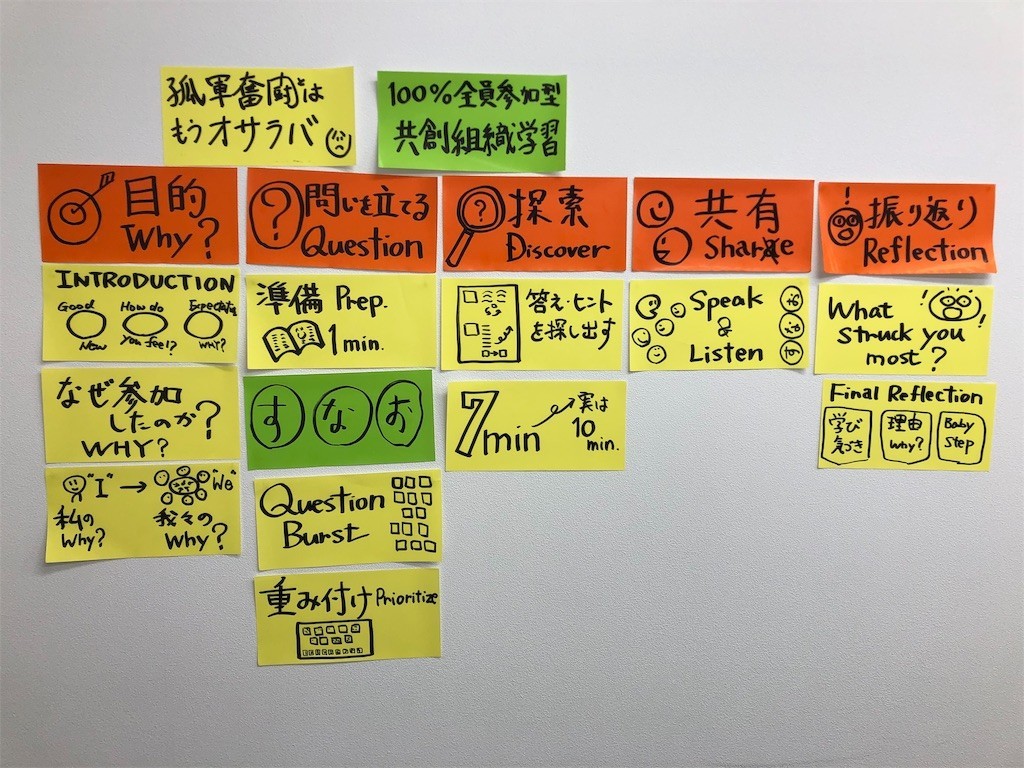 孤軍奮闘とは
もうオサラバ
100%全員参加型
共創組織学習
目的
Why?
?
問いを立てる
Question
?
探索
Discover
共有
Share
!
振り返り
Reflection
INTRODUCTION
Good
New
How do
you feel?
WHY?
なぜ参加
したのか?
WHY?
"I" → "We"
私の
Why?
我々の
Why?
準備 Prep.
1 min.
す な お
Question
Burst
重み付け Prioritize
答え・ヒント
を探し出す
7 min
実は
10
min.
Speak
&
Listen
お
な
す
What
struck you
most?
! !
Final Reflection
学び
気づき
理由
Why?
Baby
Step